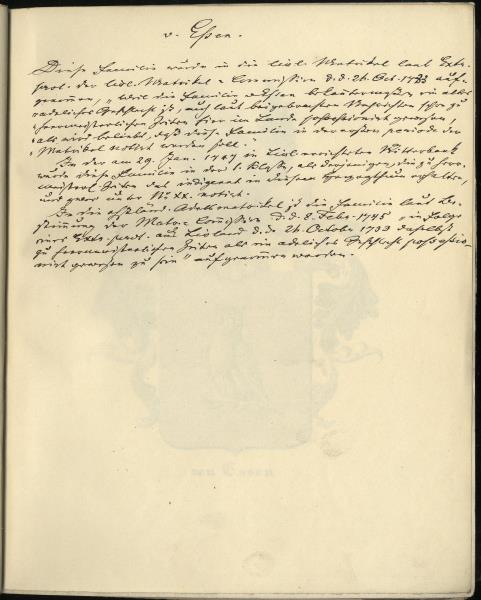 v. Essen.
Diese Familie wurde in die livl. Matrikel laut Extr.
prot. der livl. Matrikel-Commission d.d. 26. Oct. 1733 auf-
genommen, "weil die Familie ein altes
adeliches Geschlecht ist, auch laut beigebrachten Nachrichten schon zu
herrmeisterlichen Zeiten hier im Lande possessionirt gewesen,
als wird beliebt, daß diese Familie in der ersten periode der
Matrikel notirt werden soll."
In der am 29. Jan. 1747 in Livl. errichteten Ritterbank
wurde diese Familie in der 1. Klasse, als derjenigen, die zu herr-
meisterl. Zeiten das indigenat in diesem Herzogthum erhalten
und zwar unter № XX. notirt.
In die estländ. Adelsmatrikel ist die Familie laut Be-
stimmung der Matr. Comission d.d. 8. Febr. 1745 "in Folge
eines Extr. prot. aus Livland d.d. 26. Octobr 1733 daselbst
zu herrmeisterlichen Zeiten als ein adelich Geschlecht possessio-
nirt gewesen zu sein" aufgenommen worden.
von Essen